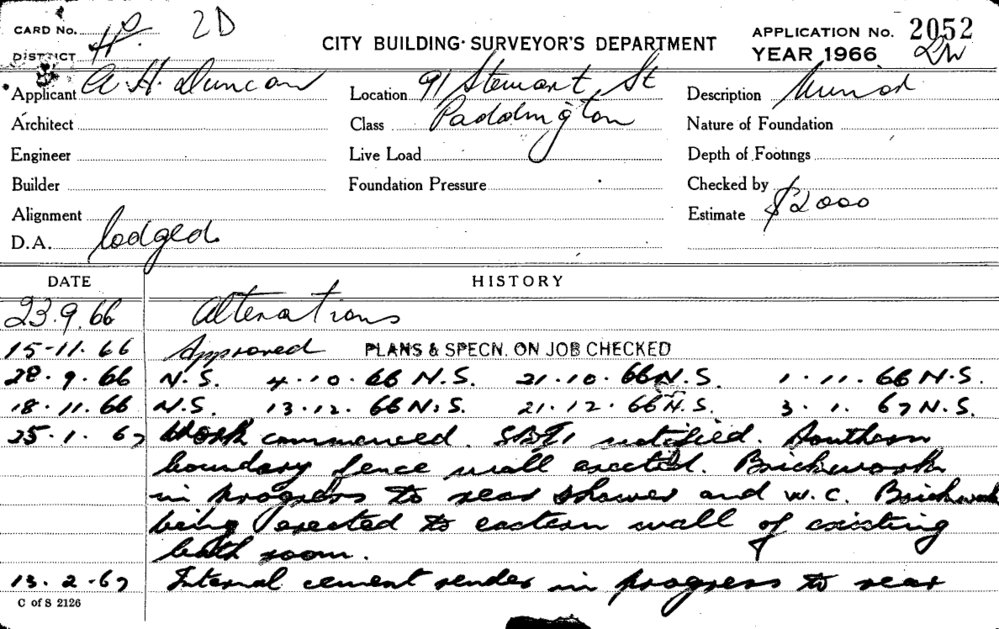 CARD No. 2D
DISTRICT
CITY BUILDING SURVEYOR'S DEPARTMENT
APPLICATION No. 2052
YEAR 1966
Applicant A H Duncan
Location 91 Stewart St
Description Minor
Architect
Class Paddington
Nature of Foundation
Engineer
Live Load
Depth of Footings
Builder
Foundation Pressure
Checked by
Alignment
Estimate $2000
D.A. lodged
DATE HISTORY
23.9.66 Alterations
15-11.66 Approved PLANS & SPECN. ON JOB CHECKED
28.9.66 N.S. 4.10.66 N.S. 21.10.66 N.S. 1.11.66 N.S.
18.11.66 N.S. 13.12.66 N.S. 21.12.66 N.S. 3.1.67 N.S.
25.1.67 Work commenced. notified. Southern
boundary fence wall erected. Brickwork
in progress to rear shower and W.C. Brickwork
being erected to eastern wall of existing
bath room.
13.2.67 Internal cement render in progress to rear
C of S 2126